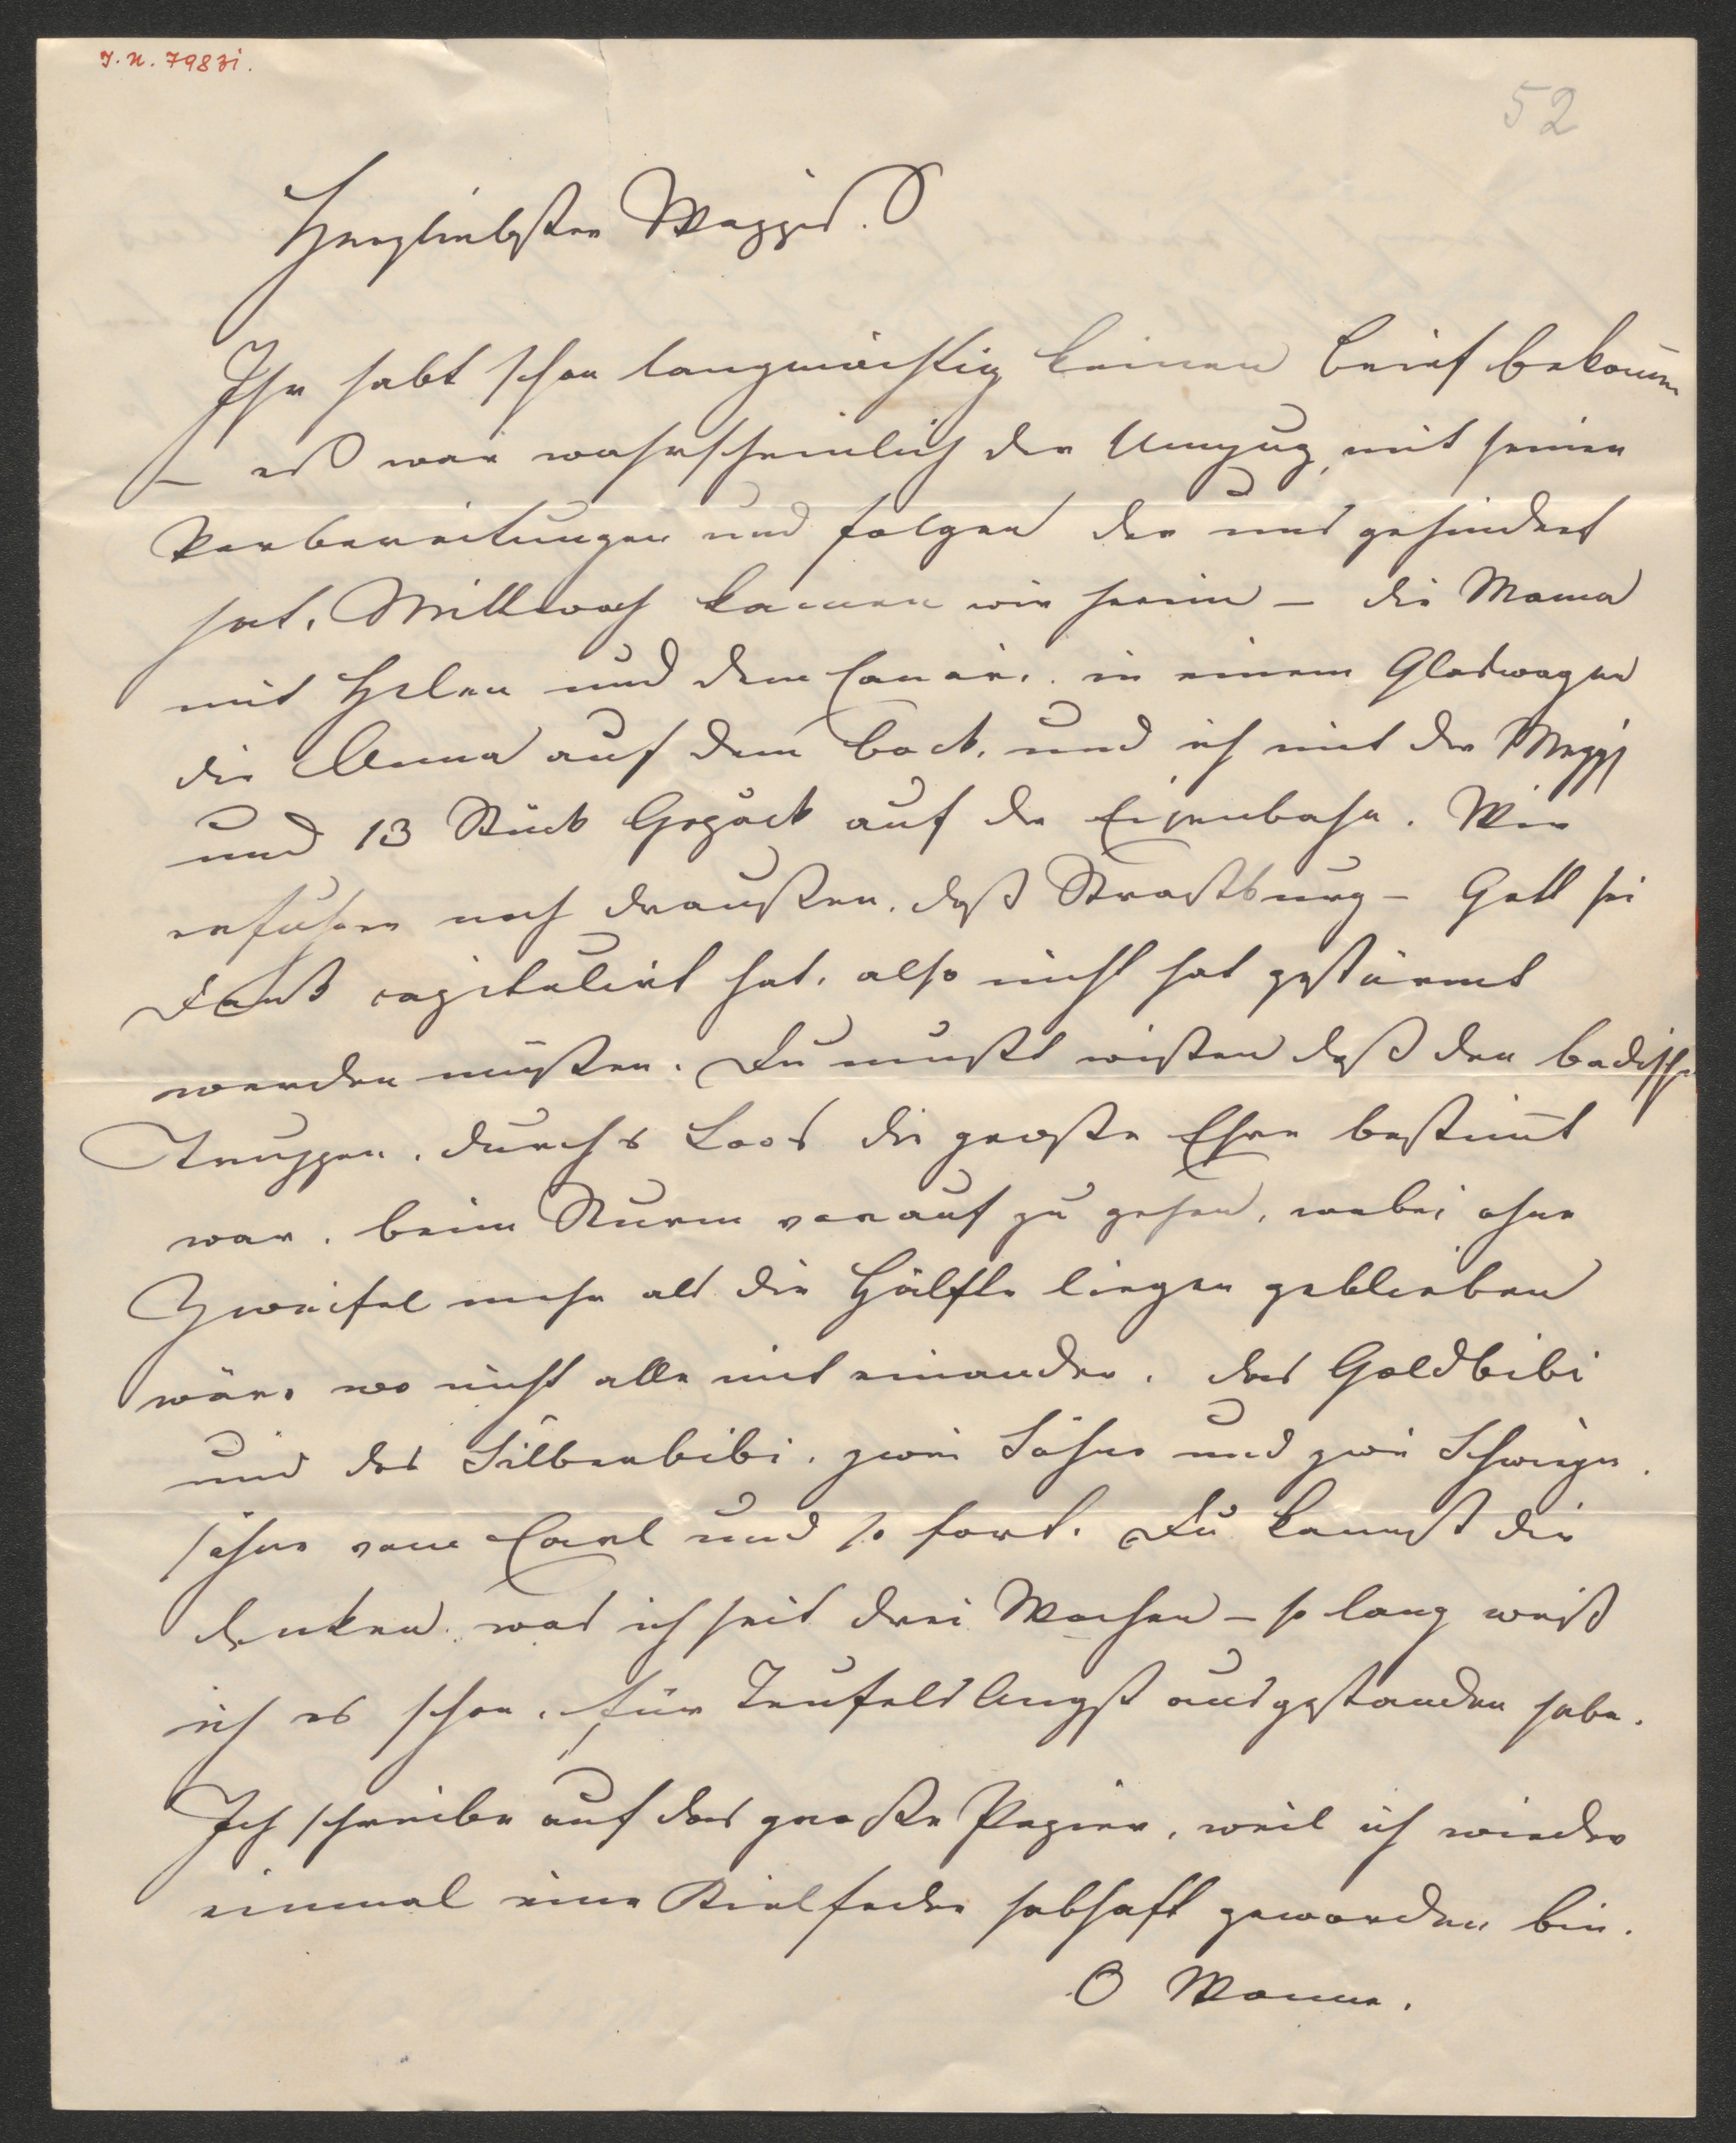 I. N. 79831.
52
Herzliebster Wazzis.
Ihr habt schon langmächtig keinen Brief bekom̄en
– es war wahrscheinlich der Umzug, mit seinen
Vorbereitungen und Folgen der uns gehindert
hat. Mittwoch kamen wir herein – die Mama
mit Helen und dem Canari. in einem Glaswagen
die Anna auf dem Bock, und ich mit der
und 13 Stück Gepäck auf der Eisenbahn. Wir
erfuhren noch draußen, daß Straßburg – Gott sei
Dank capitulirt hat, also nicht hat gestürmt
werden müssen. Du mußt wissen daß den badischen
Truppen, durch's Loos die große Ehre bestim̄t
war, beim Sturm vorauf zu gehen, wobei ohne
Zweifel mehr als die Hälfte liegen geblieben
wäre wo nicht alle mit einander. das Goldbibi
und das Silberbibi, zwei Söhne und zwei Schwieger
söhne vom Carl und so fort. Du kannst dir
denken was ich seit drei Wochen – so lang weiß
ich es schon, für Teufels Angst ausgestanden habe.
Ich schreibe auf das große Papier, weil ich wieder
einmal eine Kielfeder habhaft geworden bin.
O Wonne.